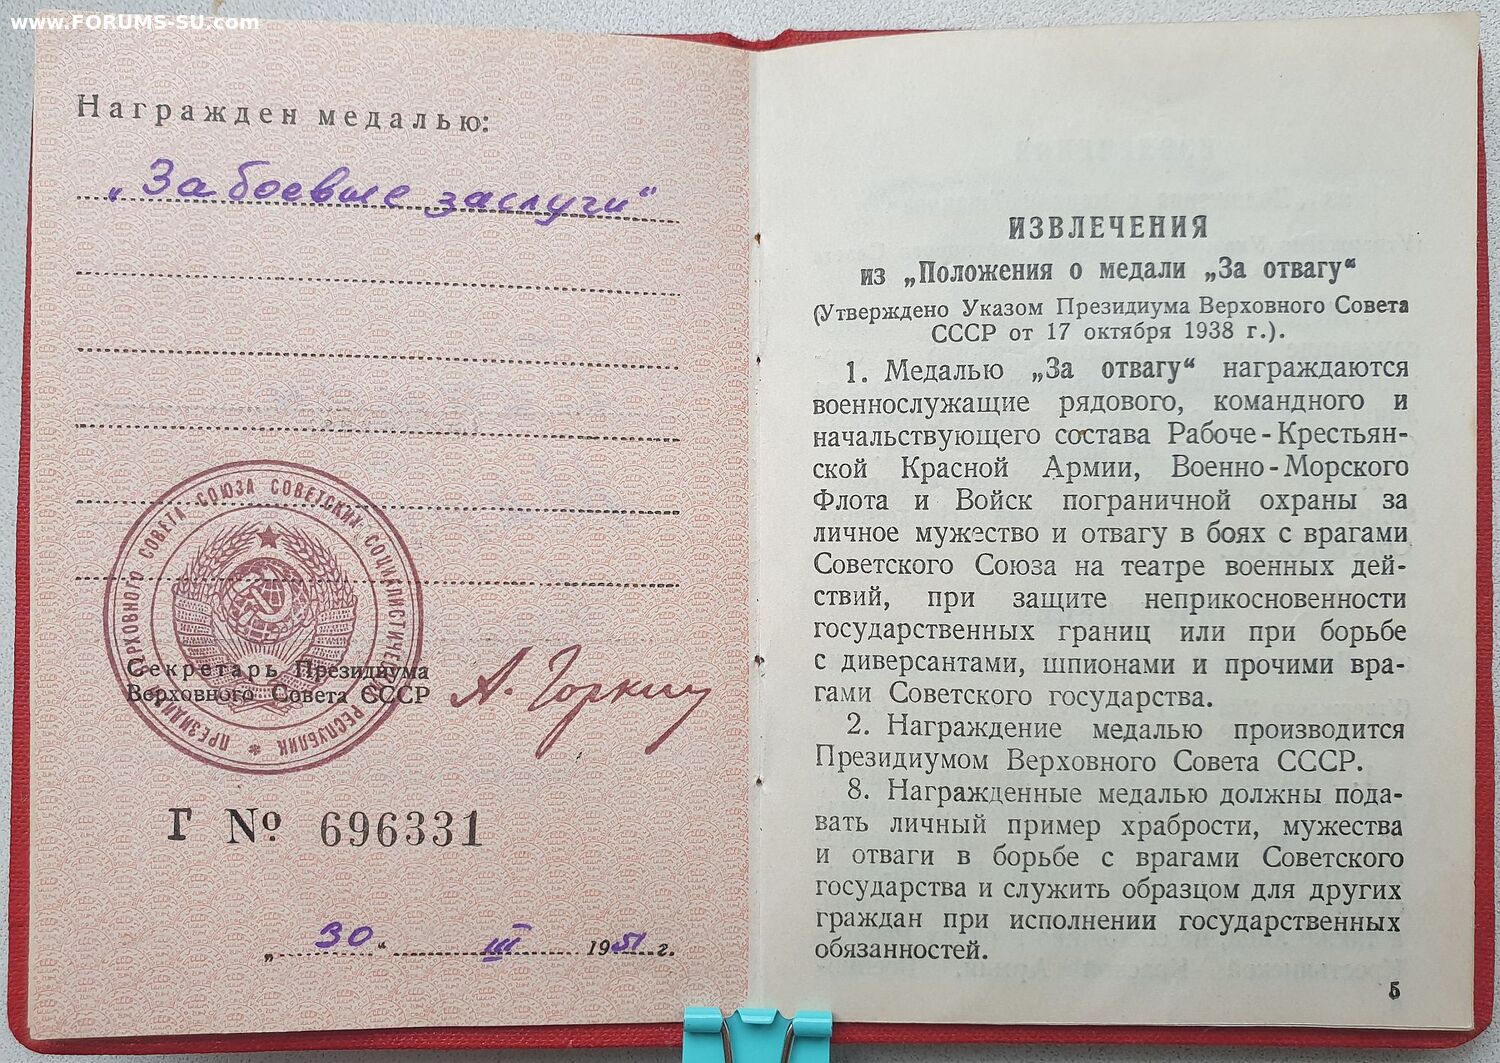 www.FORUMS-SU.com
Награжден медалью:
„За боевые заслуги“
ПРЕЗИДИУМ ВЕРХОВНОГО СОВЕТА СОЮЗА СОВЕТСКИХ СОЦИАЛИСТИЧЕСКИХ РЕСПУБЛИК
Секретарь Президиума
Верховного Совета СССР
А. Горкин
Г № 696331
„30“ III 1951 г.
ИЗВЛЕЧЕНИЯ
из „Положения о медали „За отвагу“
(Утверждено Указом Президиума Верховного Совета
СССР от 17 октября 1938 г.).
1. Медалью „За отвагу“ награждаются
военнослужащие рядового, командного и
начальствующего состава Рабоче-Крестьян-
ской Красной Армии, Военно-Морского
Флота и Войск пограничной охраны за
личное мужество и отвагу в боях с врагами
Советского Союза на театре военных дей-
ствий, при защите неприкосновенности
государственных границ или при борьбе
с диверсантами, шпионами и прочими вра-
гами Советского государства.
2. Награждение медалью производится
Президиумом Верховного Совета СССР.
8. Награжденные медалью должны пода-
вать личный пример храбрости, мужества
и отваги в борьбе с врагами Советского
государства и служить образцом для других
граждан при исполнении государственных
обязанностей.
5